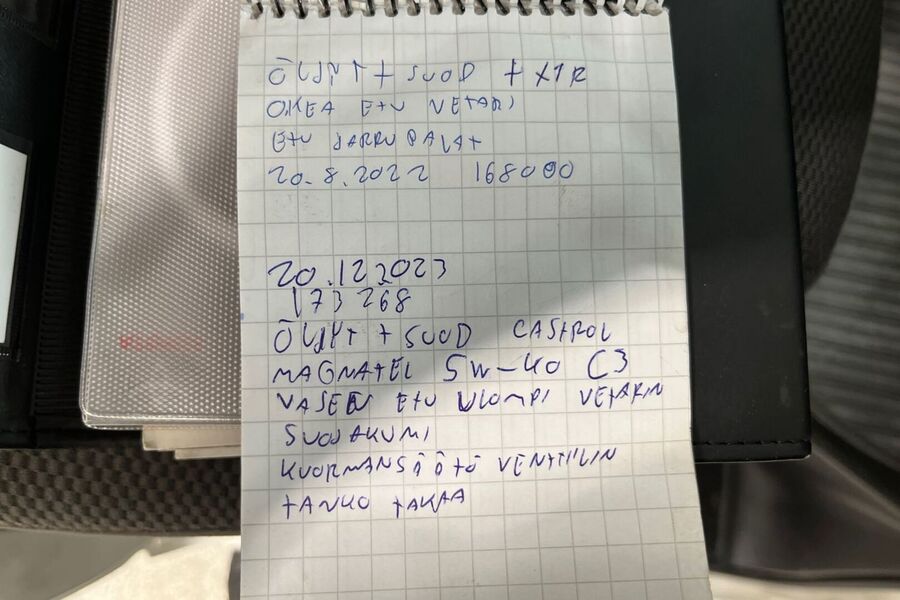 ÖLJYT + SUOD + XTR
OIKEA ETU VETARI
ETU JARRUPALAT
20.8.2022 168000
20.12 2023
173 268
ÖLJYT + SUOD CASTROL
MAGNATEC 5W-40 C3
VASEN ETU ULOMPI VETARIN
SUOJAKUMI
KUORMANSÄÄTÖ VENTTIILIN
TANKO TAKAA